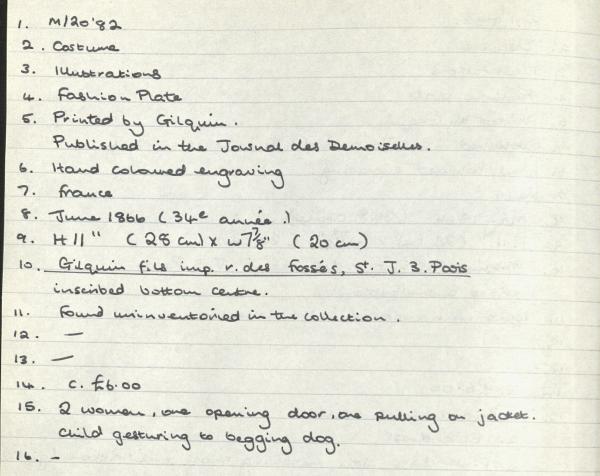 1. M/20'82
2. Costume
3. Illustrations
4. Fashion Plate
5. Printed by Gilquin.
Published in the Journal des Demoiselles.
6. Hand coloured engraving
7. France
8. June 1866 (34e année.)
9. H 11" (28 cm) x W 7 7/8" (20 cm)
10. Gilquin fils imp. r. des Fossés, St. J. 3. Paris
inscribed bottom centre.
11. Found uninventoried in the collection.
12. —
13. —
14. c. £6.00
15. 2 women, one opening door, one pulling on jacket.
Child gesturing to begging dog.
16. -